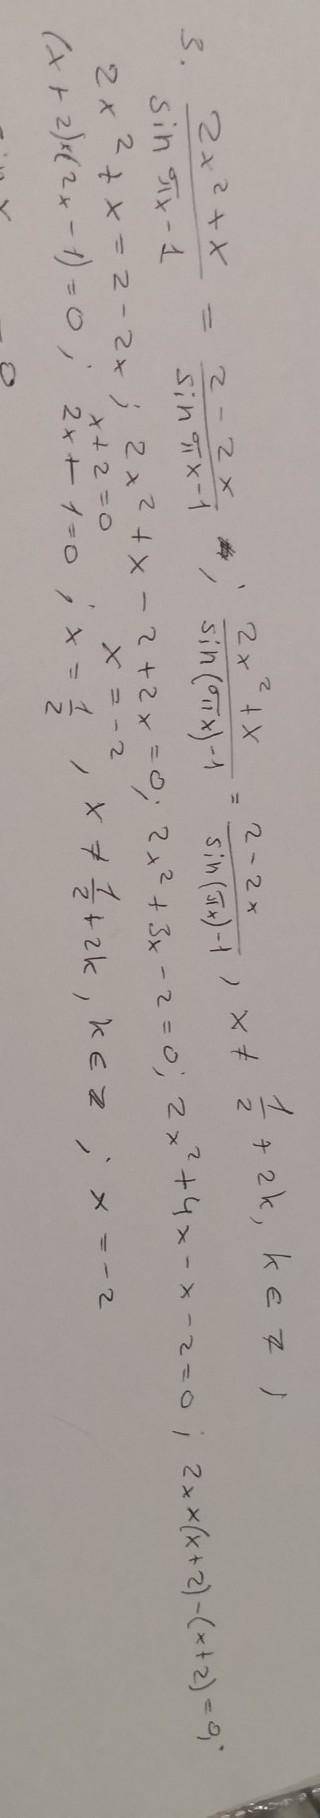 3. (2x² + x)/(sin πx - 1) = (2 - 2x)/(sin πx - 1) ; (2x² + x)/(sin(πx) - 1) = (2 - 2x)/(sin(πx) - 1) , x ≠ 1/2 + 2k, k ∈ Z ,
2x² + x = 2 - 2x ; 2x² + x - 2 + 2x = 0 ; 2x² + 3x - 2 = 0 ; 2x² + 4x - x - 2 = 0 ; 2x × (x + 2) - (x + 2) = 0 ;
x + 2 = 0 x = -2
(x + 2) × (2x - 1) = 0 ; 2x - 1 = 0 ; x = 1/2 , x ≠ 1/2 + 2k, k ∈ Z ; x = -2